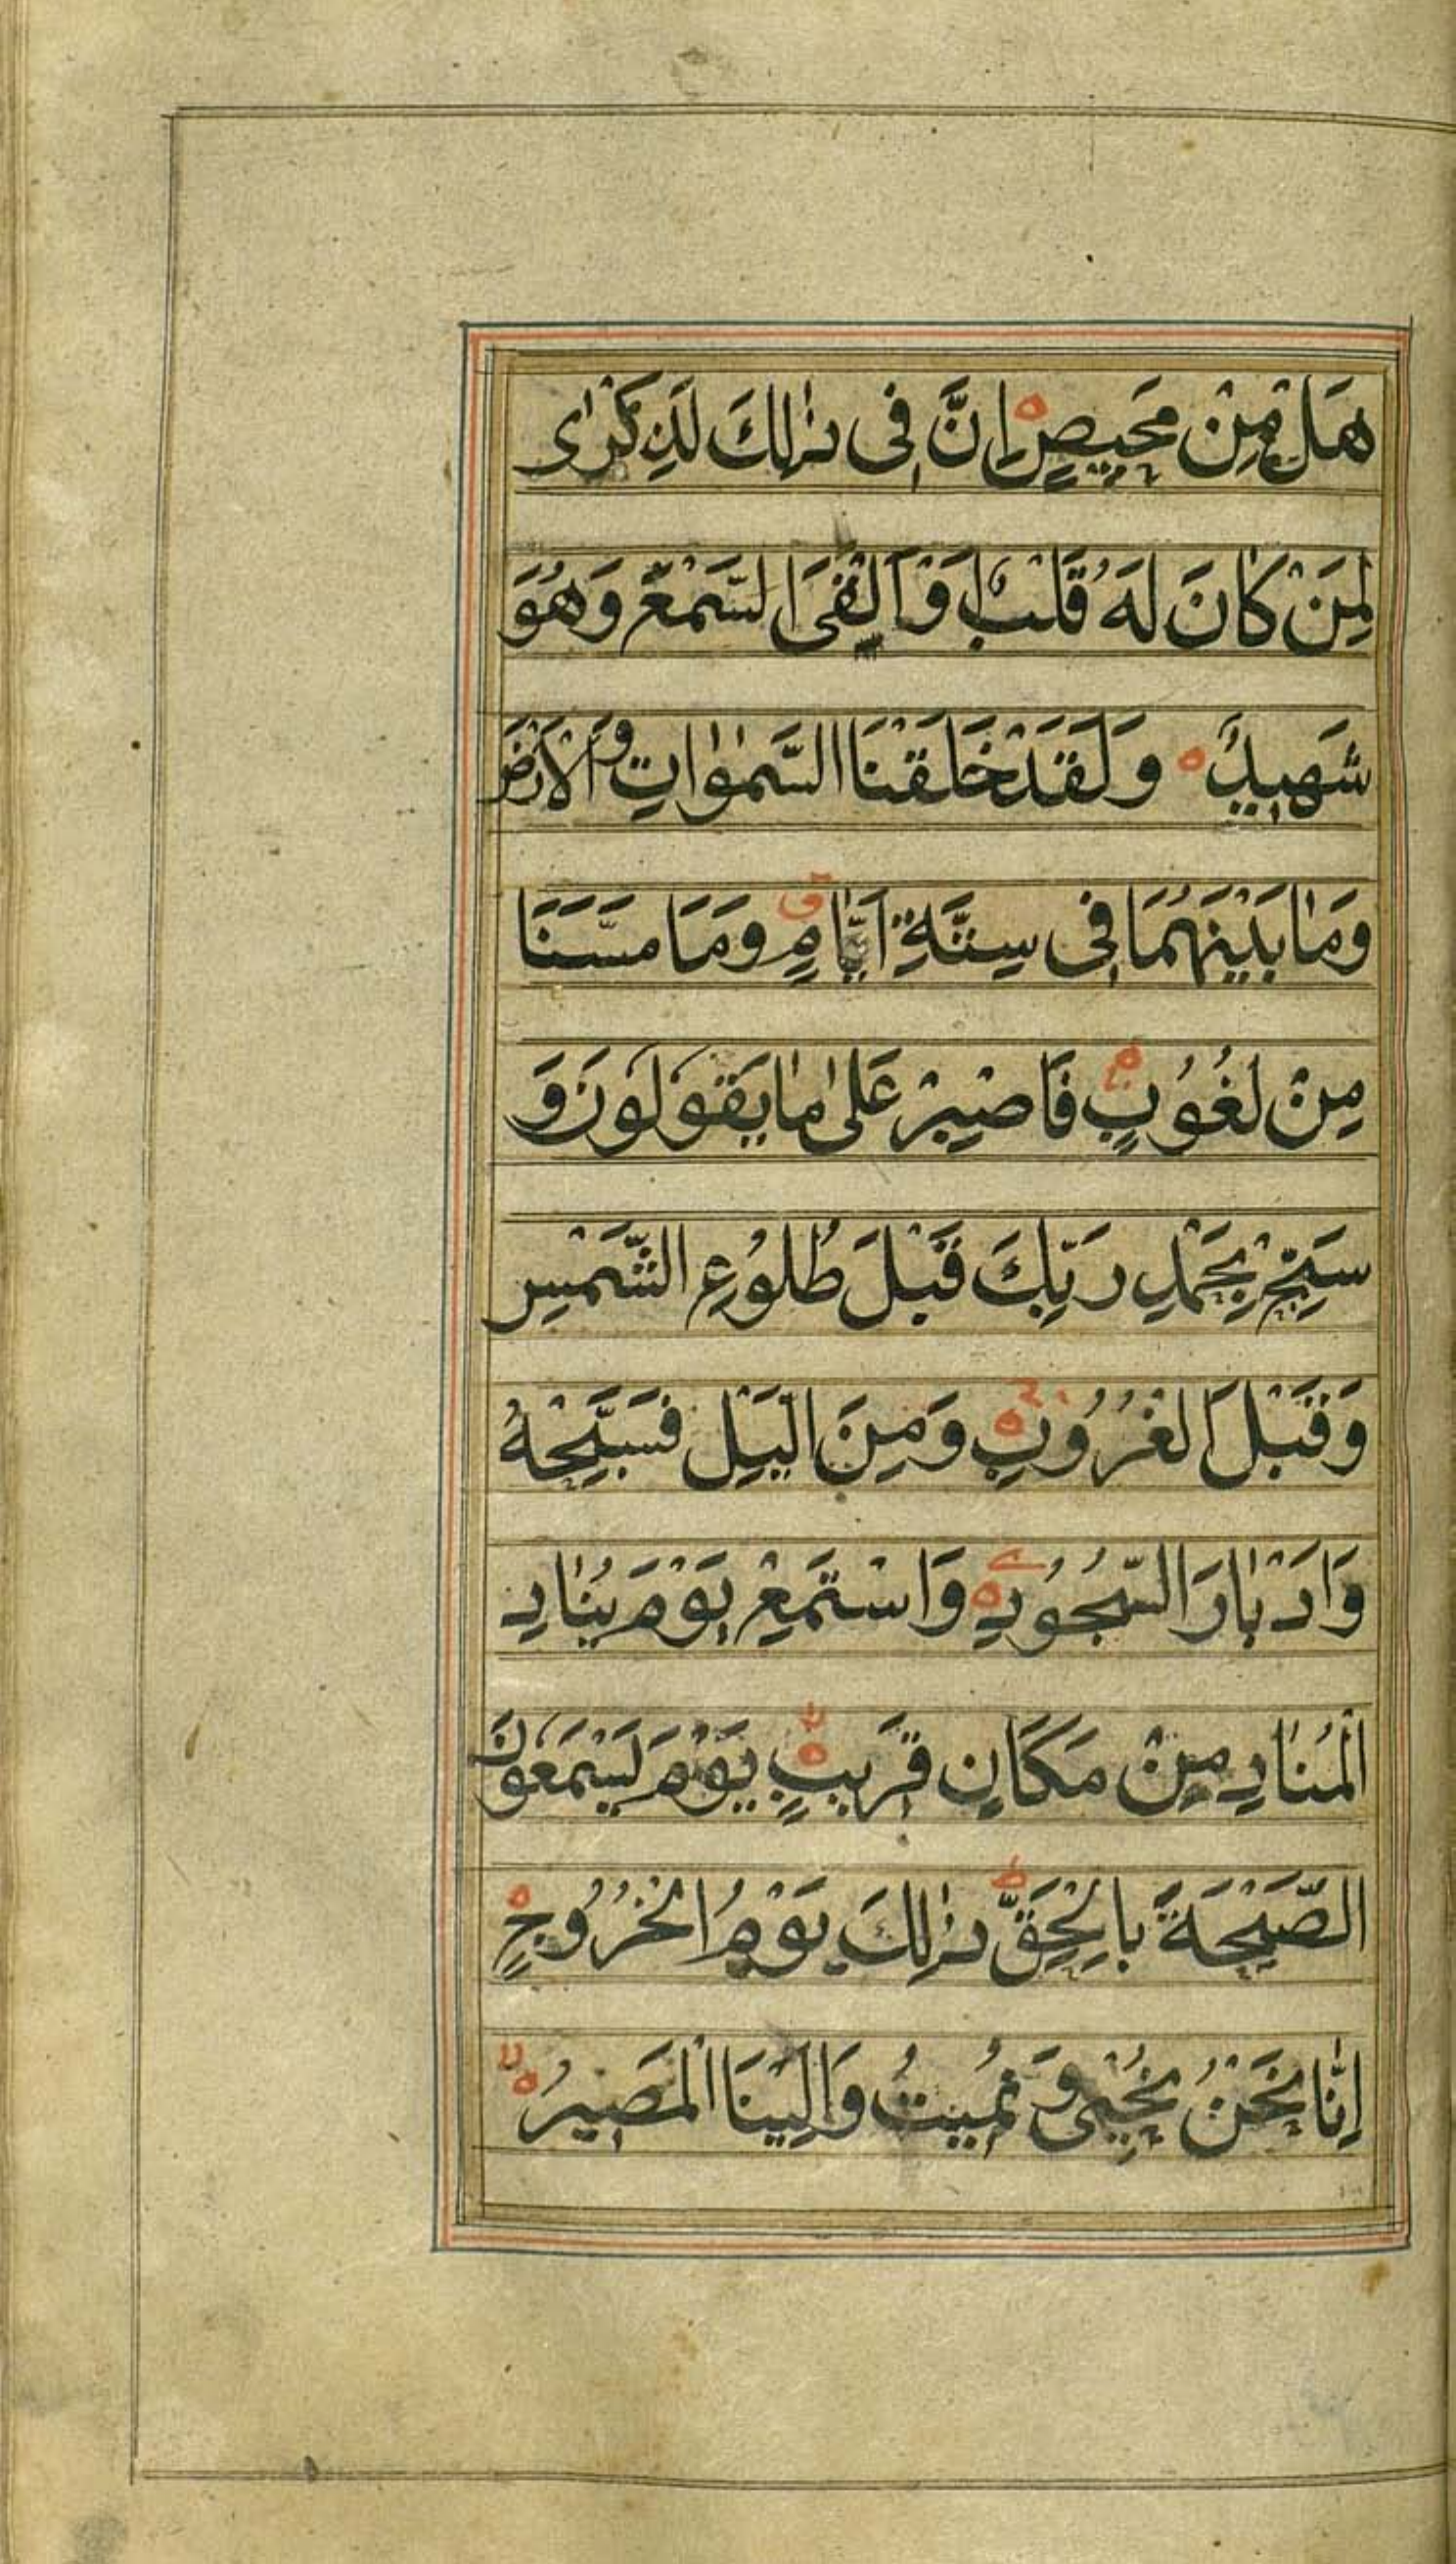 هَلْ مِنْ مَحِيصٍ اِنَّ فِى ذٰلِكَ لَذِكْرٰى
لِمَنْ كَانَ لَهُ قَلْبٌ اَوْ اَلْقَى السَّمْعَ وَهُوَ
شَهِيدٌ وَلَقَدْ خَلَقْنَا السَّمٰوَاتِ وَالْاَرْضَ
وَمَا بَيْنَهُمَا فِى سِتَّةِ اَيَّامٍ ق وَمَا مَسَّنَا
مِنْ لُغُوبٍ فَاصْبِرْ عَلٰى مَا يَقُولُونَ وَ
سَبِّحْ بِحَمْدِ رَبِّكَ قَبْلَ طُلُوعِ الشَّمْسِ
وَقَبْلَ الْغُرُوبِ وَمِنَ الَّيْلِ فَسَبِّحْهُ
وَاَدْبَارَ السُّجُودِ وَاسْتَمِعْ يَوْمَ يُنَادِ
الْمُنَادِ مِنْ مَكَانٍ قَرِيبٍ لا يَوْمَ يَسْمَعُونَ
الصَّيْحَةَ بِالْحَقِّ ط ذٰلِكَ يَوْمُ الْخُرُوجِ
اِنَّا نَحْنُ نُحْيِى وَنُمِيتُ وَاِلَيْنَا الْمَصِيرُ لا